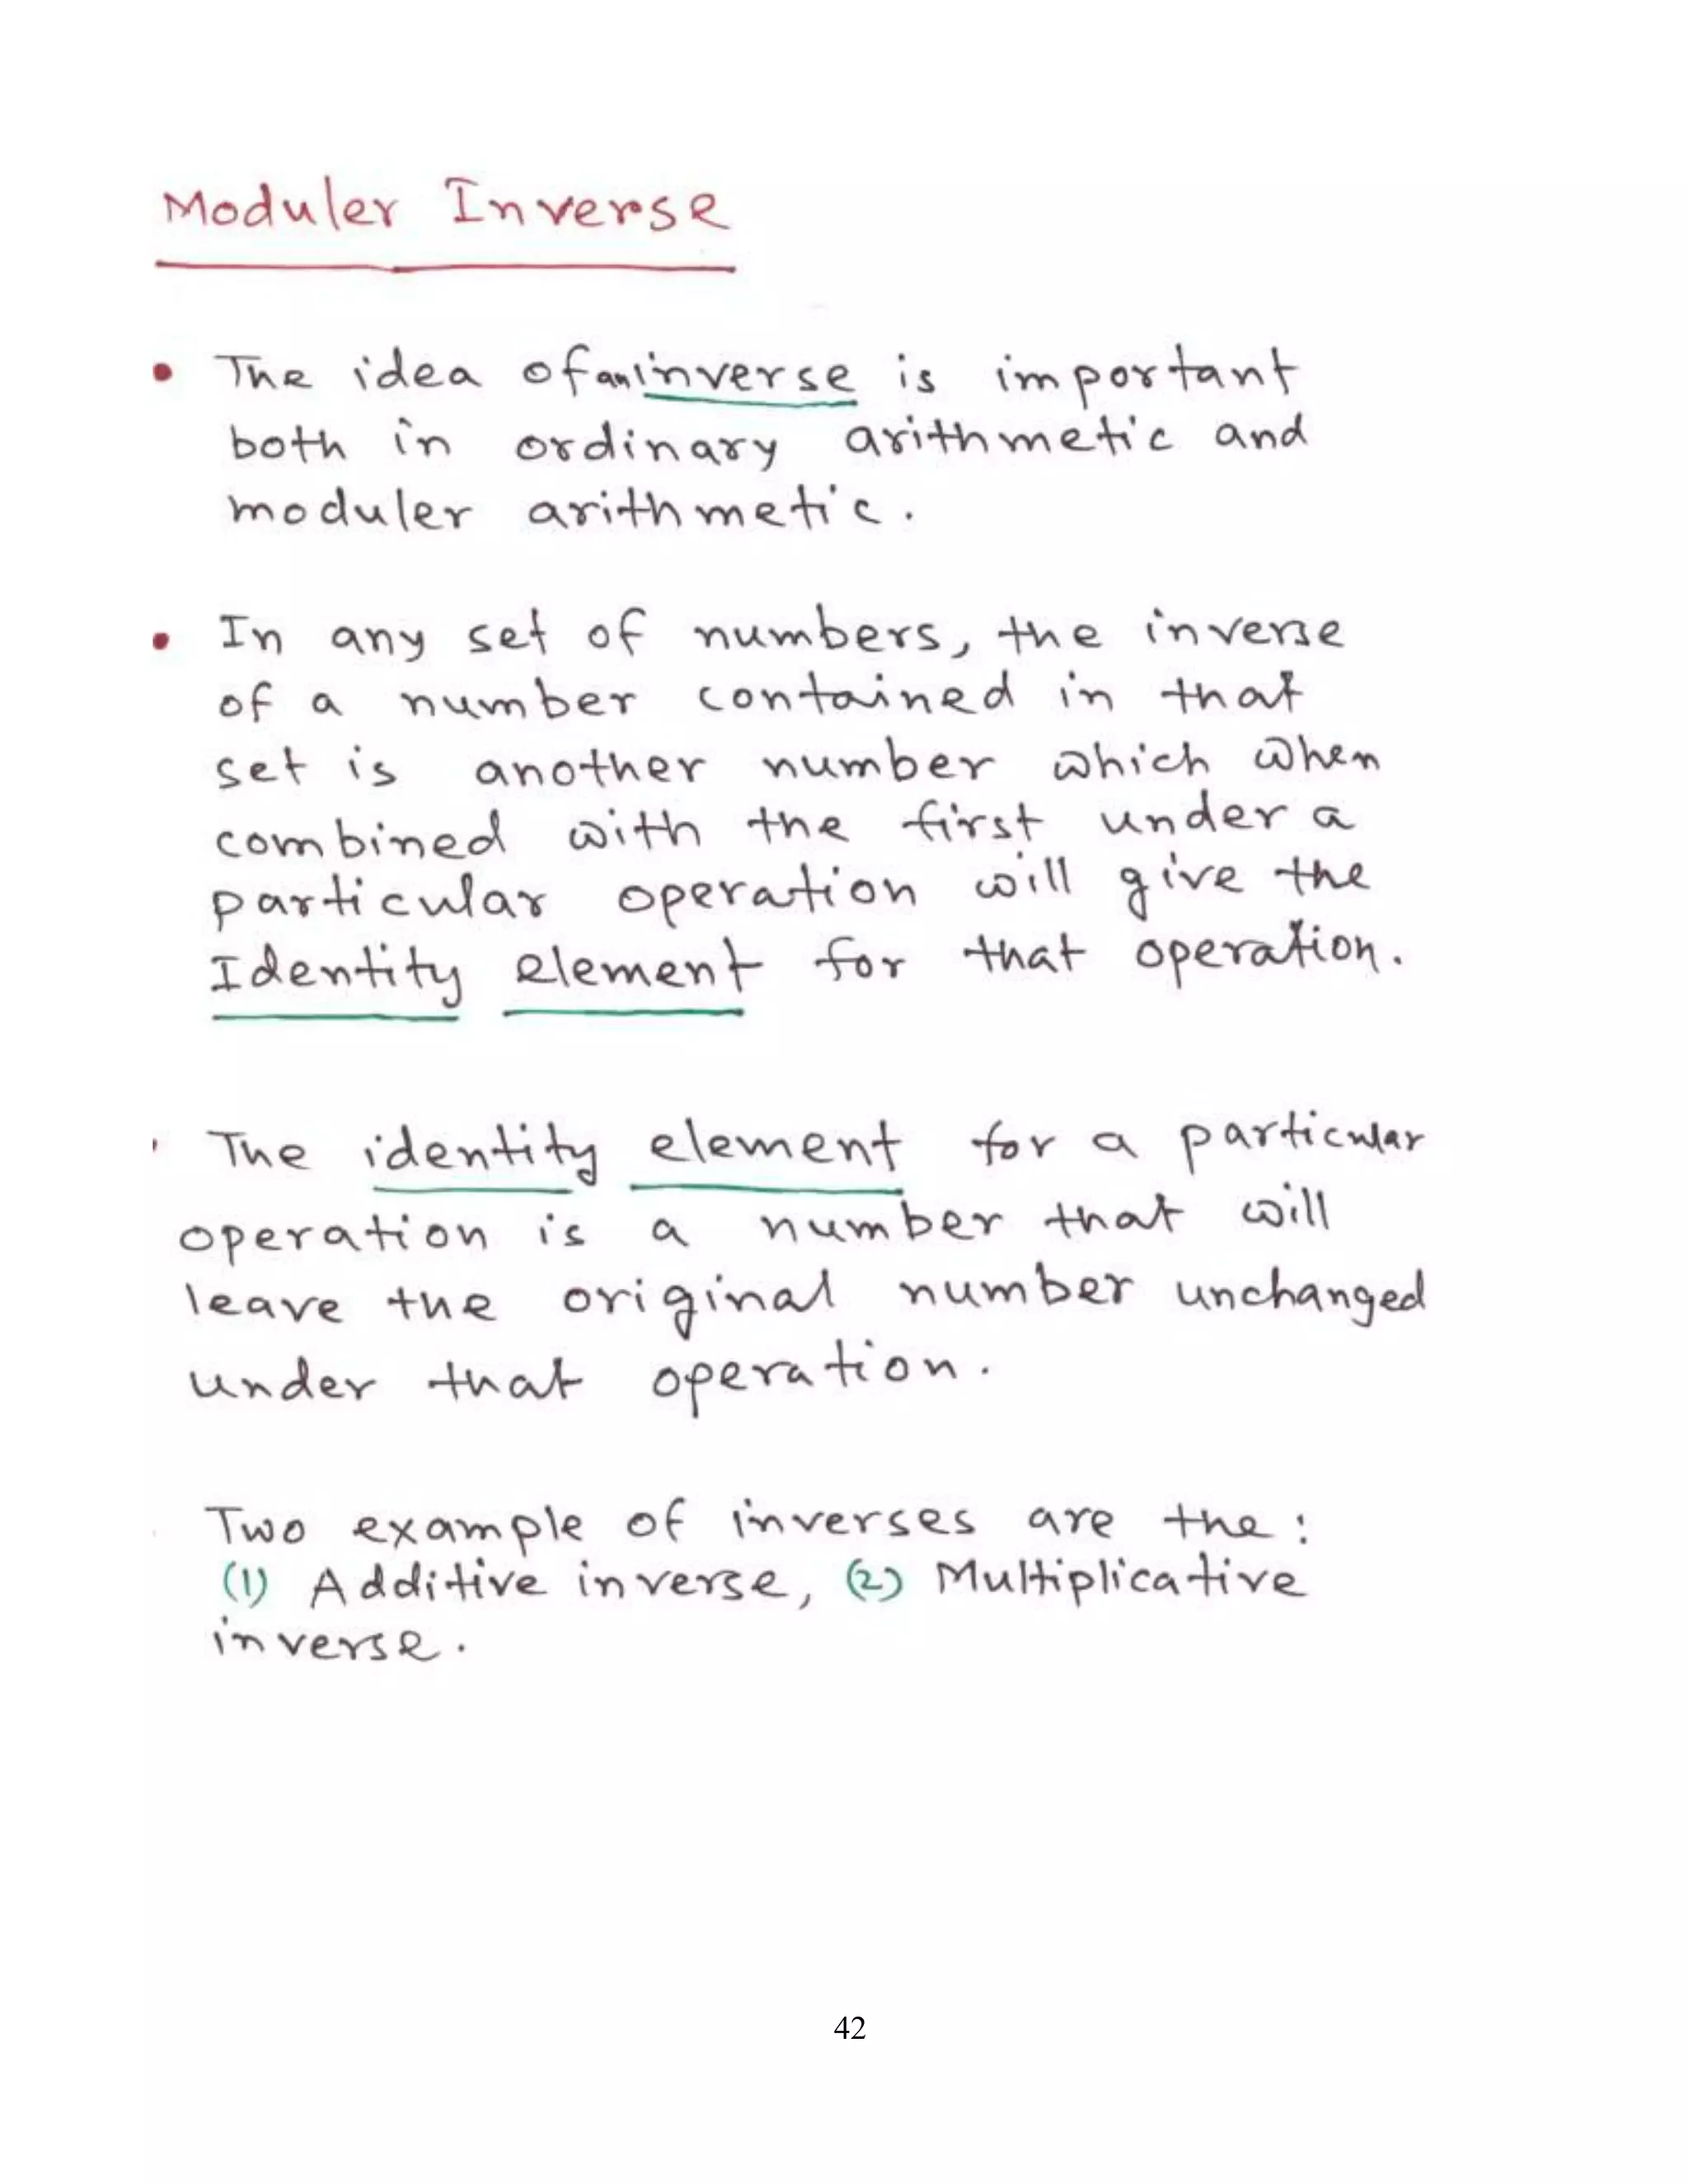 Moduler Inverse
• The idea of an inverse is important
both in ordinary arithmetic and
moduler arithmetic.
• In any set of numbers, the inverse
of a number contained in that
set is another number which when
combined with the first under a
particular operation will give the
Identity element for that operation.
• The identity element for a particular
operation is a number that will
leave the original number unchanged
under that operation.
Two example of inverses are the:
(1) Additive inverse, (2) Multiplicative
inverse.
42